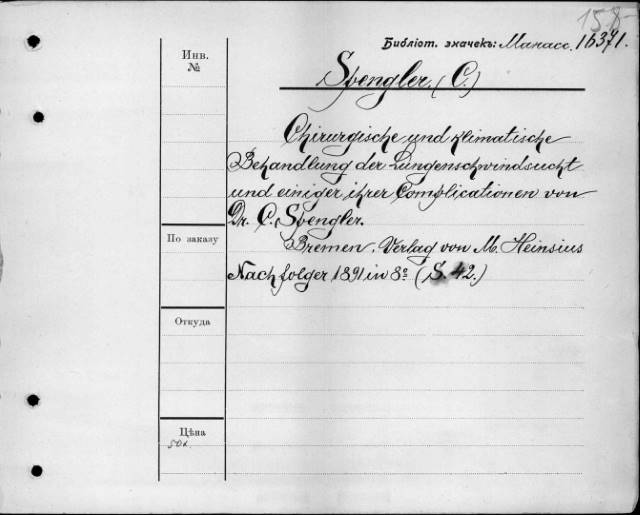 158
Библіот. значекъ: Манасс. 16371.
Инв.
№
Spengler. (C.)
Chirurgische und klimatische
Behandlung der Lungenschwindsucht
und einiger ihrer Complicationen von
Dr. C. Spengler.
По заказу
Bremen. Verlag von M. Heinsius
Nachfolger 1891 in 8º (S. 42.)
Откуда
Цѣна
50к.